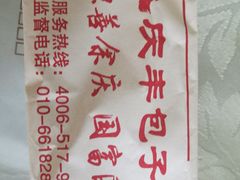 庆丰包子
善余庆 国富
服务热线：4006-517-9
监督电话：010-661828